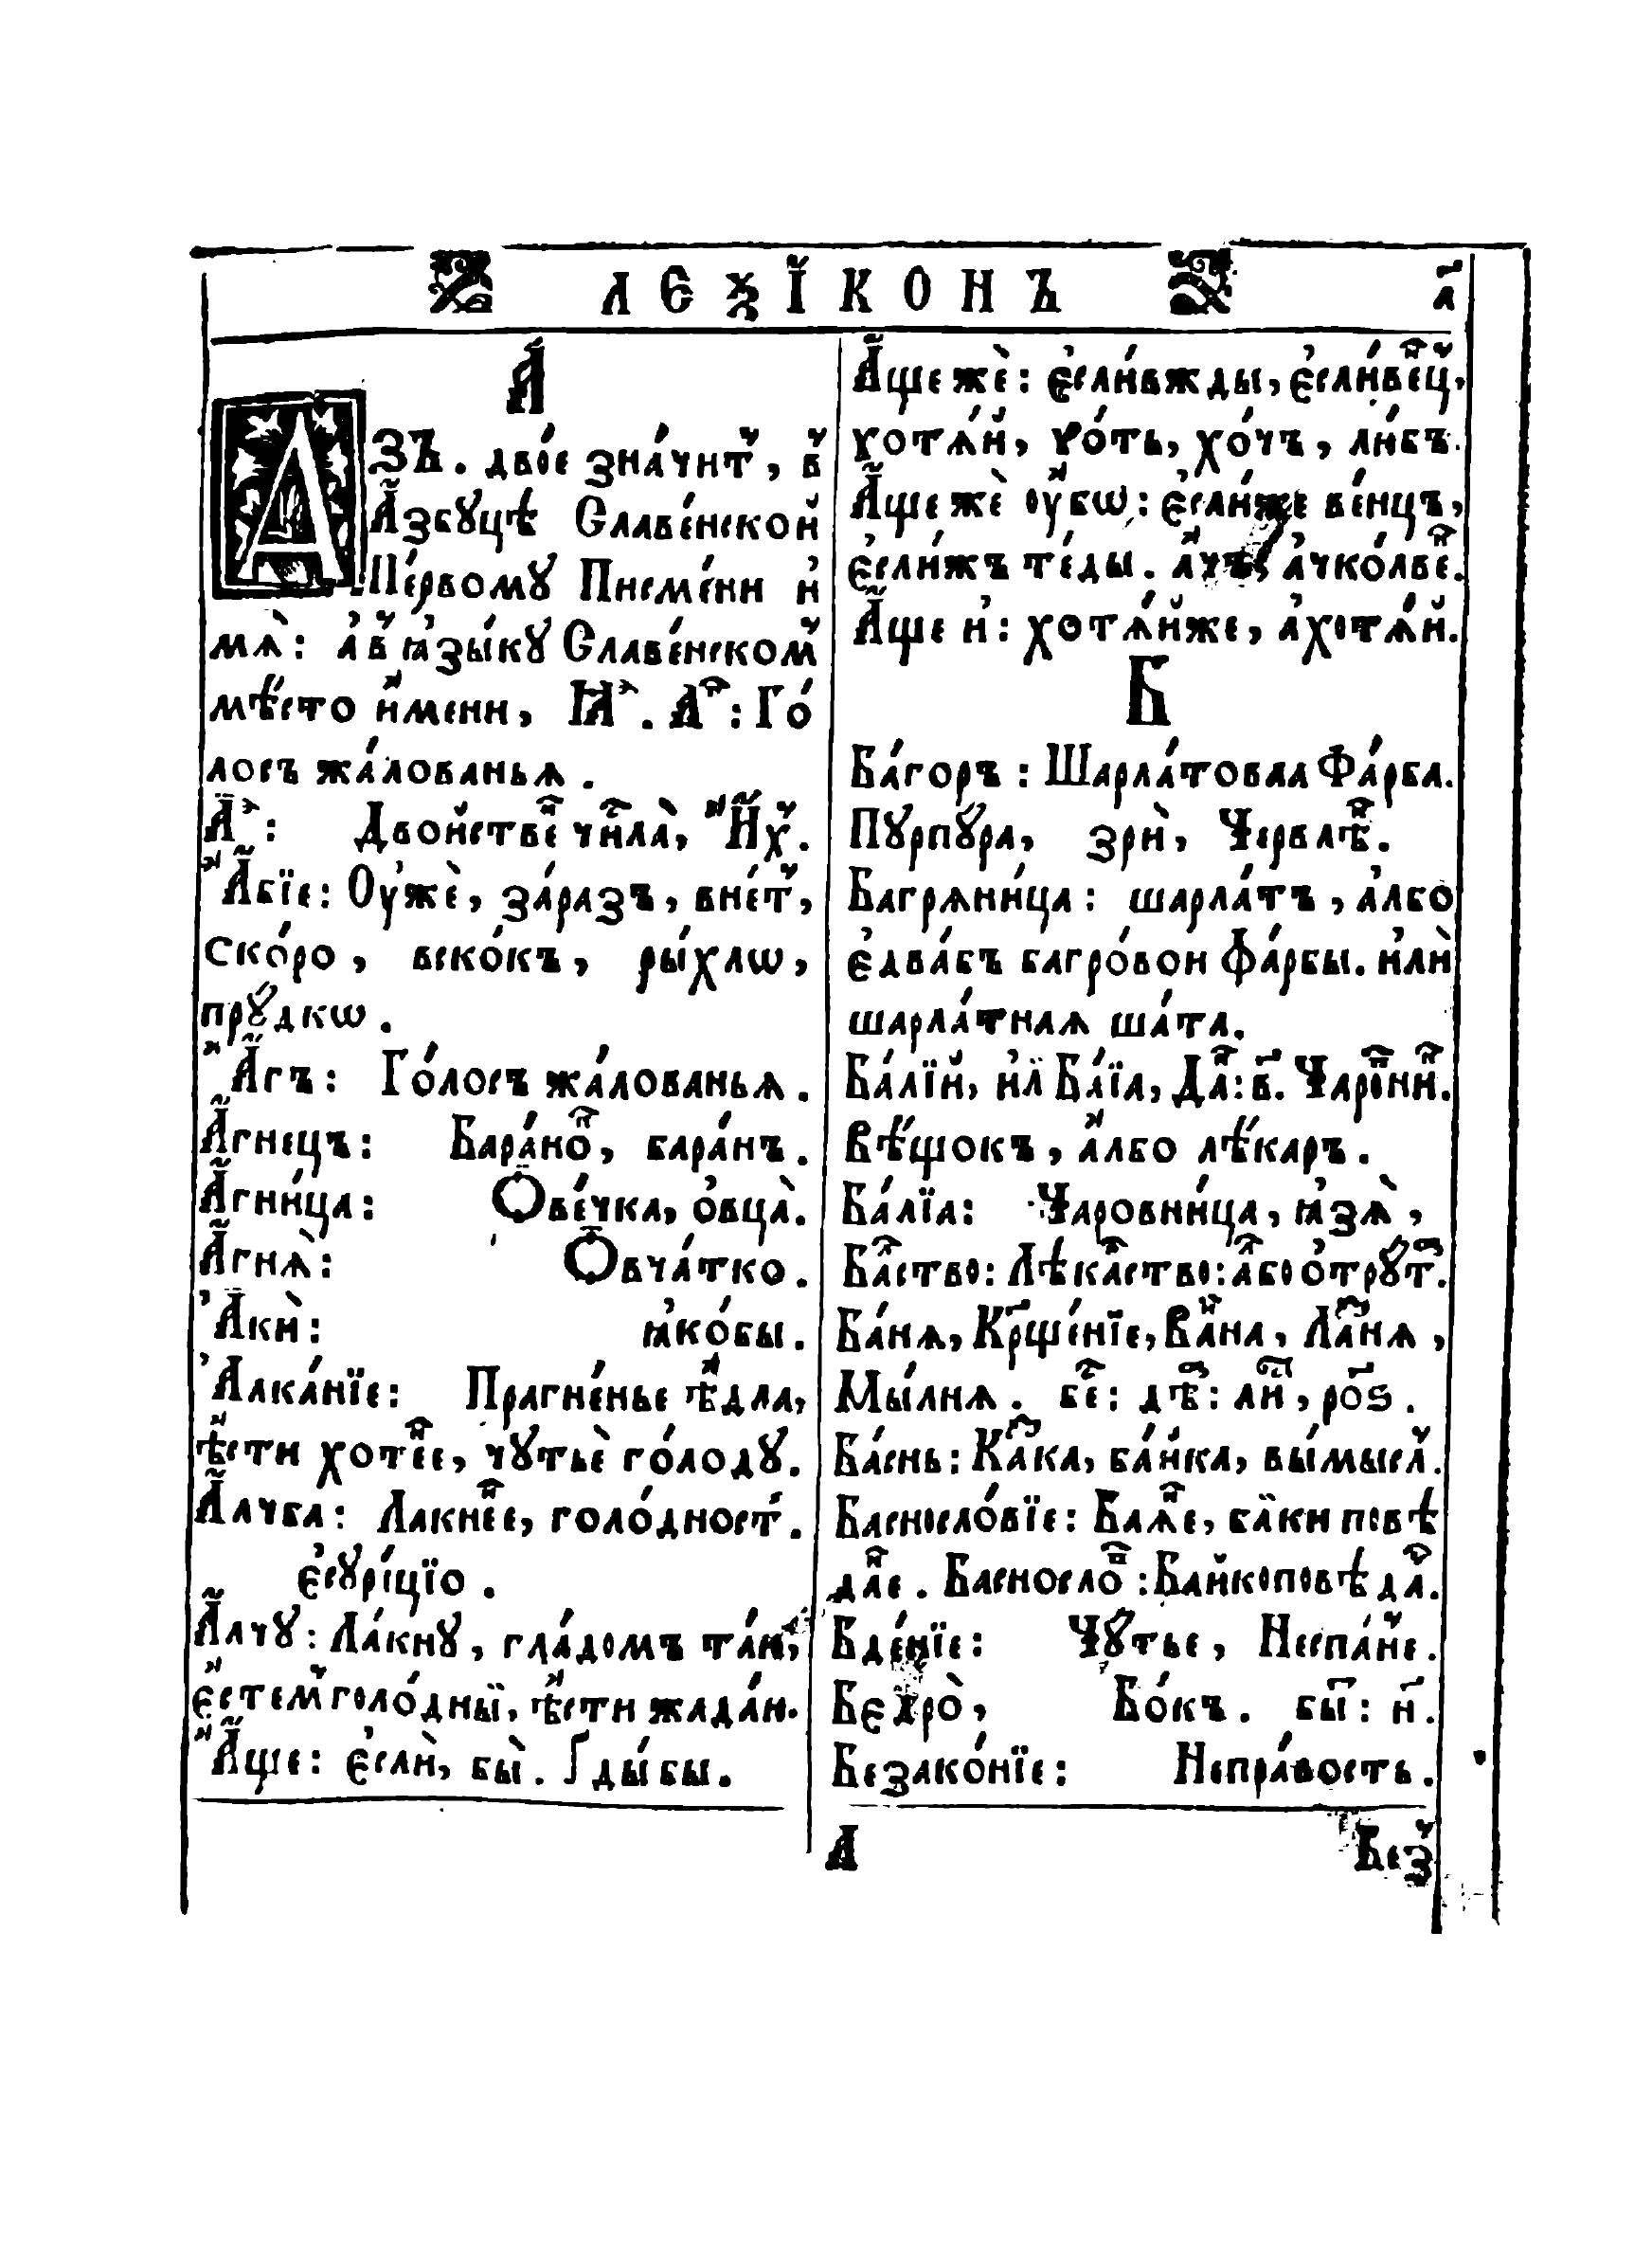 ЛЕѮЇКОНЪ а҃
А҆́
АЗЪ. двоѐ зна́читъ, в
А҆́збꙋцѣ Славе́нской
Пе́рвомꙋ Писме́ни и҆
мѧ̀: а҆ в ꙗ҆зы́кꙋ Славе́нском
мѣ́сто и҆́мени, ꙖꙀ. Аг: Го́
лосъ жа́лованьѧ.
Двойстве числа̀, Их.
А҆́бїе: Оу҆жѐ, за́разъ, внет,
ско́ро, вско́къ, ры́хлѡ,
прꙋ́дкѡ.
А҆́гъ: Го́лосъ жа́лованьѧ.
А҆́гнецъ: Бара́нокъ, бара́нъ.
А҆гни́ца: Ѻ҆ве́чка, о҆вца̀.
А҆гнѧ̀: Ѻ҆вча́тко.
А҆кѝ: ꙗ҆ко́бы.
А҆лка́нїе: Прагне́нье ѣ҆́дла,
ѣ҆́сти хоте́нїе, чꙋтьѐ го́лодꙋ.
А҆́лчба: Лакне́нїе, голо́дност.
є҆сꙋрі́цїо.
А҆́лчꙋ: Ла́кнꙋ, гла́домъ та́ю,
є҆́стем голо́дный, ѣ҆́сти жада́ю.
А҆́ще: є҆слѝ, бы̀. Ґды́бы.
А҆́ще жѐ: є҆сли́вжды, є҆сли́венц,
хотѧ́й, хо́ть, хо́чъ, ли́бъ.
А҆́ще жѐ оу҆́бѡ: є҆сли́же ве́нцъ,
є҆сли́жъ те́ды. а҆́чъ, а҆чко́лве.
А҆́ще и҆: хотѧ́йже, а҆хотѧ́й.
Б
Ба́горъ: Шарла́товаа Фа́рба.
Пꙋрпꙋ́ра, зрѝ, Червле.
Багрѧни́ца: шарла́тъ, а҆лбо
є҆два́бъ багро́вой фа́рбы. и҆лѝ
шарла́тнаѧ ша́та.
Ба́лїй, и҆л Ба́їа, Да: в҃. Чаровни.
Вѣ́щокъ, а҆́лбо лѣ́каръ.
Ба́лїа: Чаровни́ца, ꙗ҆зѧ̀,
Ба́лство: Лѣка́рство: а҆́лбо о҆трꙋ́т.
Ба́нѧ, Крще́нїе, Ва́нна, Ла́знѧ,
Мы́лнѧ. бе: дѣ: ли, роѕ.
Ба́снь: Ка́зка, ба́йка, вы́мысл.
Баснесло́вїе: Баѧне, ба̀йки повѣ
да́не. Баснослов: Байкоповѣда́.
Бде́нїе: Чꙋ́тье, Неспа́не.
Бедро̀, Бо́къ. бы: н҃.
Безако́нїе: Непра́вость.
А Без